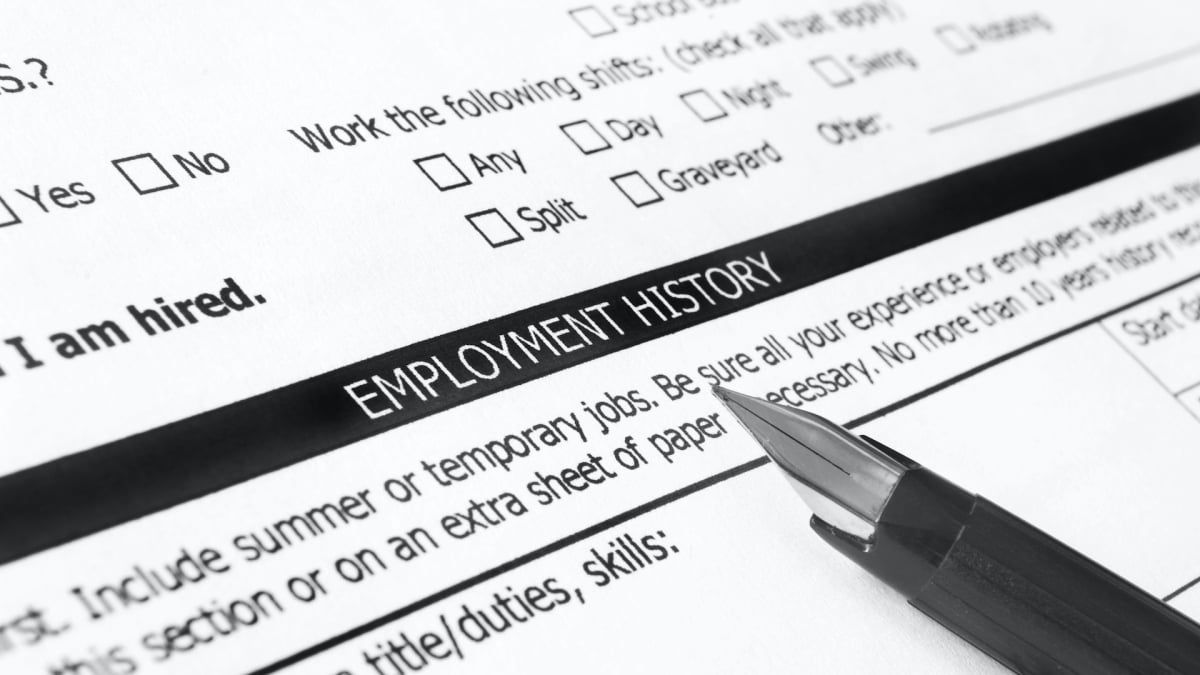 School
Work the following shifts: (check all that apply)
Any Day Night Swing Rotating
Split Graveyard Other:
S.?
Yes No
I am hired.
EMPLOYMENT HISTORY
Include summer or temporary jobs. Be sure all your experience or employers related to this
this section or on an extra sheet of paper ecessary. No more than 10 years history
title/duties, skills:
Start